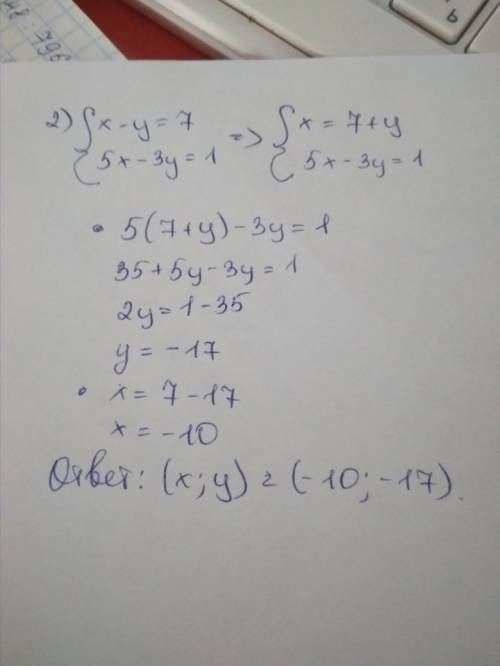 2) { x - y = 7 => { x = 7 + y
{ 5x - 3y = 1 { 5x - 3y = 1
• 5(7+y) - 3y = 1
35 + 5y - 3y = 1
2y = 1 - 35
y = -17
• x = 7 - 17
x = -10
Ответ: (x; y) = (-10; -17).